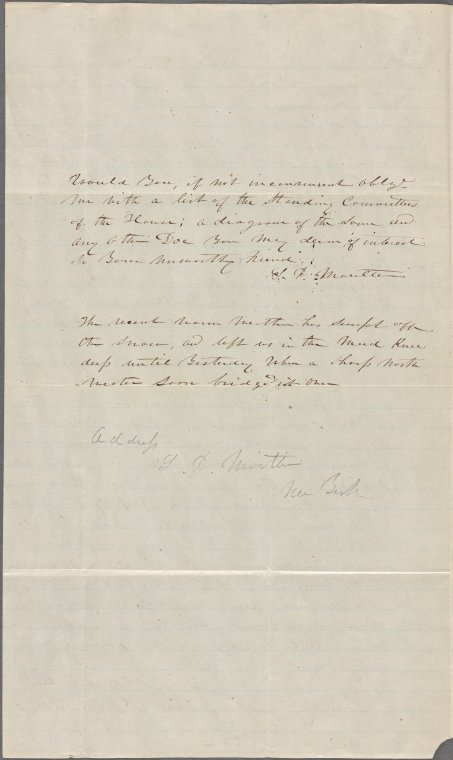 Would You, if not inconvenient oblg.
me with a list of the Standing Committees
of the House; a diagram of the Same and
any other Doc You May deem of interest
to Your unworthy friend.
S. D. Moulton
The recent warm Weather has Swept off
the Snow, and left us in the Mud Knee
deep until Yesterday When a Sharp North
Wester Soon bridgd it Over
Address
S D Moulton